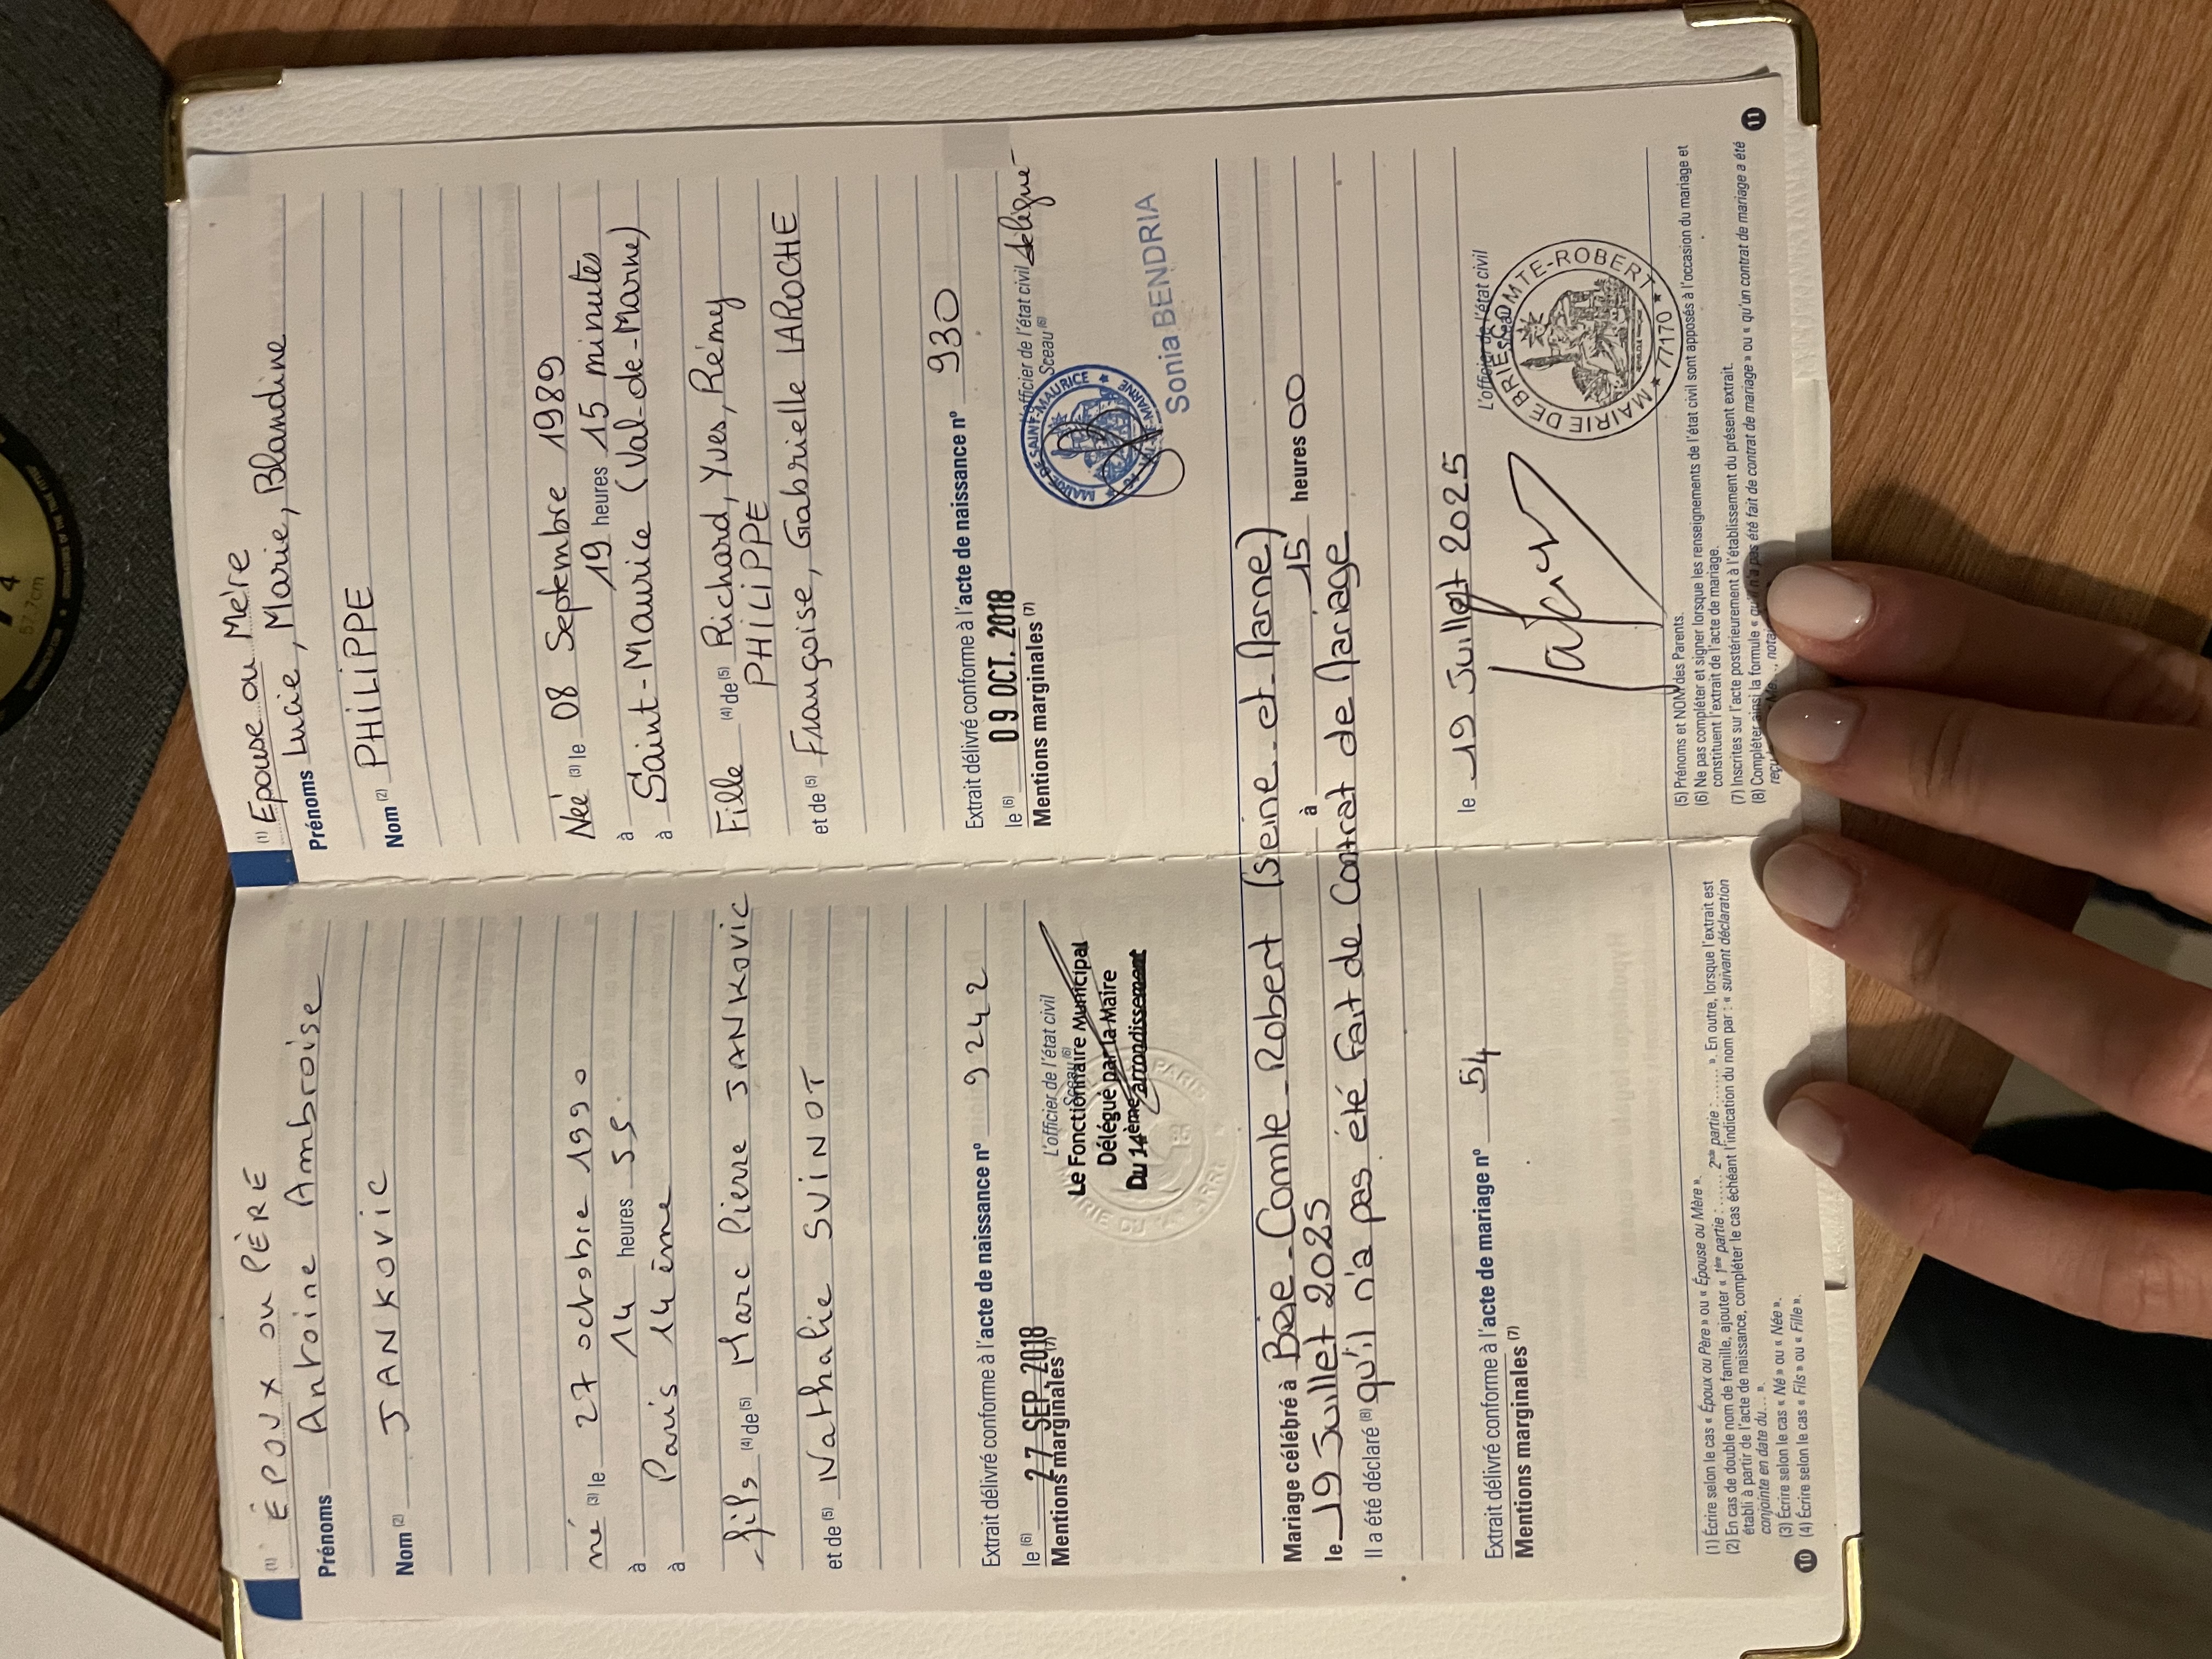 (1) ÉPOUX ou PÈRE
Prénoms Antoine Ambroise
Nom (2) JANKOVIC
né (3) le 27 octobre 1990
à 14 heures 55.
à Paris 14 ème
fils (4) de (5) Marc Pierre JANKOVIC
et de (5) Nathalie SUINOT
Extrait délivré conforme à l'acte de naissance n° 9242
le (6) 27 SEP. 2018 L'officier de l'état civil
Sceau (6)
Mentions marginales (7)
Le Fonctionnaire Municipal
Délégué par la Maire
Du 14ème arrondissement
(1) Epouse ou Mère
Prénoms Lucie, Marie, Blandine
Nom (2) PHILIPPE
Née (3) le 08 Septembre 1989
à 19 heures 15 minutes
à Saint-Maurice (Val-de-Marne)
Fille (4) de (5) Richard, Yves, Rémy
PHILIPPE
et de (5) Françoise, Gabrielle LAROCHE
Extrait délivré conforme à l'acte de naissance n° 930
le (6) 09 OCT. 2018 L'officier de l'état civil délégué
Sceau (6)
Mentions marginales (7)
MAIRIE DE SAINT-MAURICE
VAL-DE-MARNE
Sonia BENDRIA
Mariage célébré à Brie-Comte-Robert (Seine-et-Marne)
le 19 Juillet 2025 à 15 heures 00
Il a été déclaré (8) qu'il n'a pas été fait de Contrat de Mariage
Extrait délivré conforme à l'acte de mariage n° 54 le 19 Juillet 2025
Mentions marginales (7)
L'officier de l'état civil
Sceau
MAIRIE DE BRIE-COMTE-ROBERT
77170
(1) Écrire selon le cas « Époux ou Père » ou « Épouse ou Mère ».
(2) En cas de double nom de famille, ajouter « 1ère partie : ...... 2nde partie : ...... ». En outre, lorsque l'extrait est
établi à partir de l'acte de naissance, compléter le cas échéant l'indication du nom par : « suivant déclaration
conjointe en date du... ».
(3) Écrire selon le cas « Né » ou « Née ».
(4) Écrire selon le cas « Fils » ou « Fille ».
10
(5) Prénoms et NOM des Parents.
(6) Ne pas compléter et signer lorsque les renseignements de l'état civil sont apposés à l'occasion du mariage et
constituent l'extrait de l'acte de mariage.
(7) Inscrites sur l'acte postérieurement à l'établissement du présent extrait.
(8) Compléter ainsi la formule « qu'il n'a pas été fait de contrat de mariage » ou « qu'un contrat de mariage a été
reçu
11